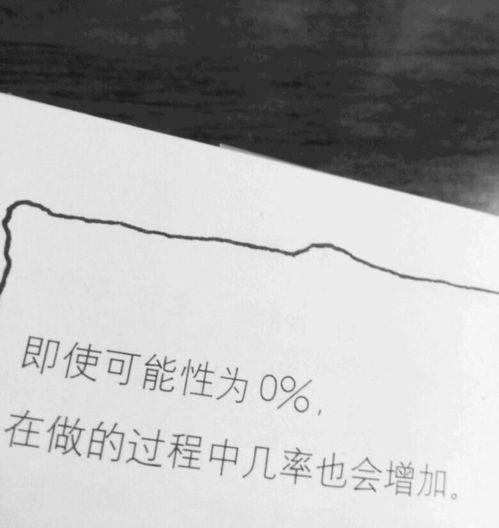 即使可能性为0%,
在做的过程中几率也会增加。